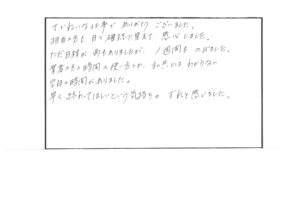 ていねいな仕事で ありがとうございました。
担当の方も 日の確認に見えて 安心しました。
ただ日程が 雨もありましたが、1週間も のびました。
業者の方の時間の使い方とか、私共には わからない
空白の時間がありました。
早く終わってほしいという気持ちの ずれを感じました。